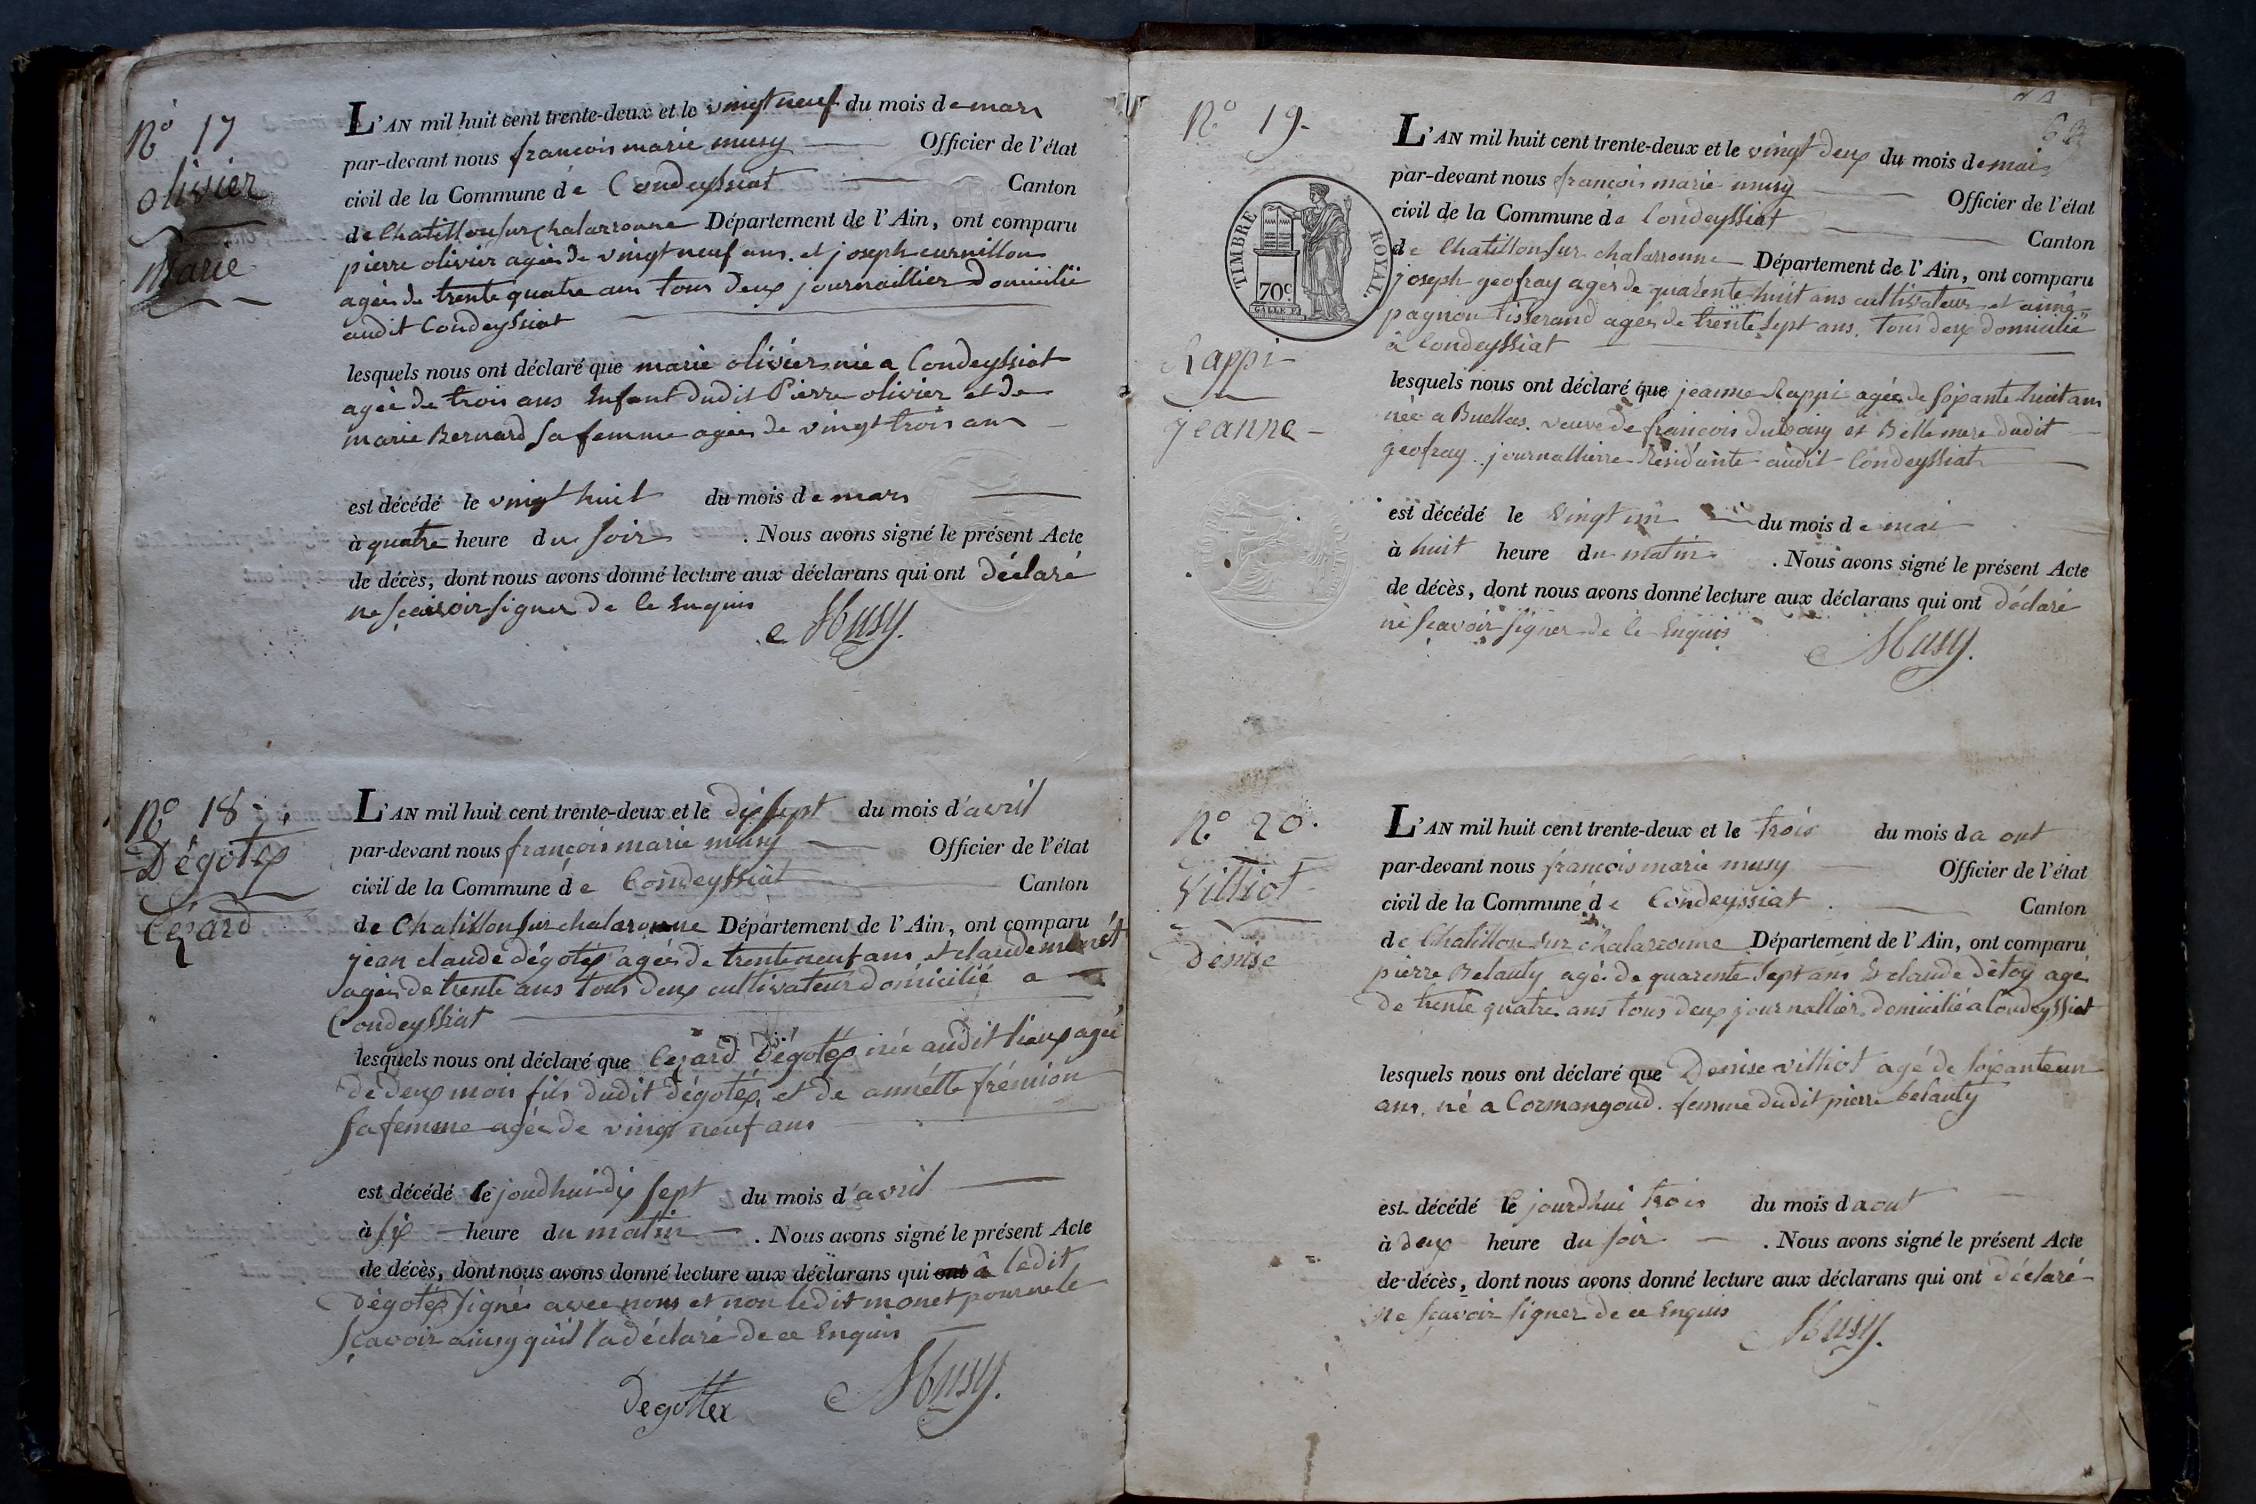 N° 17
olivier
Marie
L'AN mil huit cent trente-deux et le vingt neuf du mois de mars
par-devant nous francois marie musy Officier de l'état
civil de la Commune de Condeyssiat Canton
de Chatillon sur chalaronne Département de l'Ain, ont comparu
pierre olivier agés de vingt neuf ans. et joseph curnillon
agés de trente quatre ans tous deux journaillier domicilié
audit Condeyssiat
lesquels nous ont déclaré que marie olivier née a Condeyssiat
agée de trois ans Enfant dudit Pierre olivier et de
marie Bernard sa femme agées de vingt trois ans
est décédé le vingt huit du mois de mars
à quatre heure du soir . Nous avons signé le présent Acte
de décès, dont nous avons donné lecture aux déclarans qui ont déclaré
ne sçavoir signer de ce Enquis
Musy.
N° 18
Dégotex
Cézard
L'AN mil huit cent trente-deux et le dix sept du mois d'avril
par-devant nous francois marie musy Officier de l'état
civil de la Commune de Condeyssiat Canton
de Chatillon sur chalaronne Département de l'Ain, ont comparu
jean claude dégotex agés de trente neuf ans et claude
agés de trente ans tous deux cultivateur domicilié a
Condeyssiat
lesquels nous ont déclaré que Cezard Dégotex née audit lieux agée
de deux mois fils dudit dégotex, et de annétte frémion
sa femme agée de vingt neuf ans
est décédé le joudhui dix sept du mois d'avril
à six heure du matin . Nous avons signé le présent Acte
de décès, dont nous avons donné lecture aux déclarans qui ont à ledit
dégotex signé avec nous et non ledit monet pour ne le
sçavoir ainsy quil la déclaré de ce Enquis
Degottex Musy.
N° 19.
TIMBRE ROYAL.
70c
Rappi
jeanne
L'AN mil huit cent trente-deux et le vingt deux du mois de mai
par-devant nous francois marie musy Officier de l'état
civil de la Commune de Condeyssiat Canton
de Chatillon sur chalarronne Département de l'Ain, ont comparu
joseph geofray agés de quarente huit ans cultivateur et aimé
pagnon tisserand agés de trente sept ans, tous deux domicilié
à Condeyssiat
lesquels nous ont déclaré que jeanne Rappi agée de soixante huit ans
née a Buellas. veuve de francois duboisy et Belle mere dudit
geofray. journalliere Résidante audit Condeyssiat
est décédé le vingt un du mois de mai
à huit heure du matin . Nous avons signé le présent Acte
de décès, dont nous avons donné lecture aux déclarans qui ont déclaré
ne sçavoir signer de ce Enquis
Musy.
N° 20.
Villiot
Denise
L'AN mil huit cent trente-deux et le trois du mois d a out
par-devant nous francois marie musy Officier de l'état
civil de la Commune de Condeyssiat Canton
de Chatillon sur chalarronne Département de l'Ain, ont comparu
pierre Belauty agé de quarente sept ans Et claude Détoy agé
de trente quatre ans tous deux journallier domicilié a Condeyssiat
lesquels nous ont déclaré que Denise villiot agé de soixante un
ans. né a Cormangoud. femme dudit pierre belauty
est décédé le jourdhui trois du mois d aout
à deux heure du soir . Nous avons signé le présent Acte
de décès, dont nous avons donné lecture aux déclarans qui ont déclaré
ne sçavoir signer de ce Enquis
Musy.